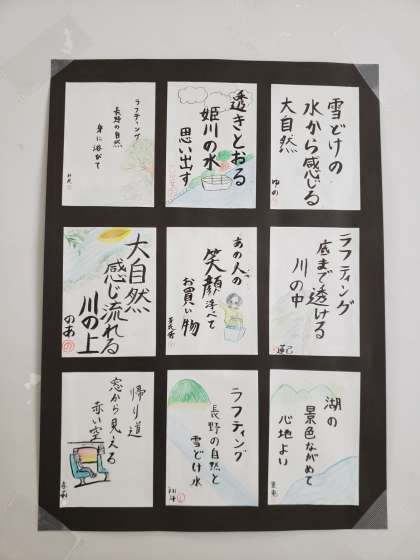 雪どけの
水から感じる
大自然
ゆの
透きとおる
姫川の水
思い出す
ラフティング
長野の自然
身に浴びて
ラフティング
底まで透ける
川の中
あの人の
笑顔浮べて
お買い物
大自然
感じ流れる
川の上
のあ
湖の
景色ながめて
心地よい
ラフティング
長野の自然と
雪どけ水
帰り道
窓から見える
赤い空